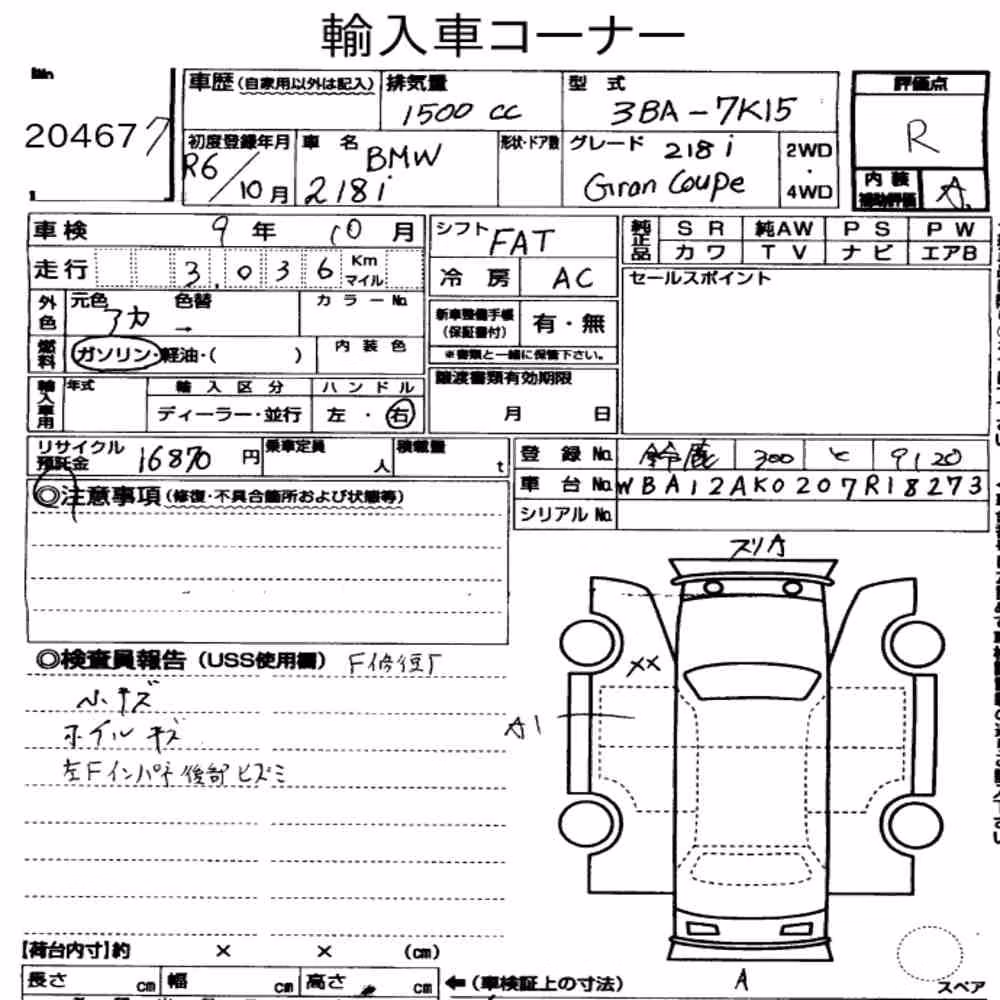 輸入車コーナー
No.
204677
車歴(自家用以外は記入)
排気量
1500 cc
型 式
3BA-7K15
評価点
R
初度登録年月
R6/10月
車 名
BMW
218i
形状・ドア数
グレード
218i
Gran Coupe
2WD
・
4WD
内 装
補助評価
A
車検
9年 10月
シフト
FAT
純正品
S R
純AW
P S
P W
カ ワ
T V
ナ ビ
エアB
走行
3.036
Km
マイル
冷 房
AC
セールスポイント
外色
元色
アカ
色替
→
カ ラ ー No.
新車整備手帳
(保証書付)
有・無
※書類と一緒に保管下さい。
燃料
ガソリン・軽油・( )
内 装 色
譲渡書類有効期限
月 日
輸入車用
年式
輸 入 区 分
ディーラー・並行
ハ ン ド ル
左 ・ 右
リサイクル
預託金
16870 円
乗車定員
人
積載量
t
登 録 No.
鈴鹿 300 と 9120
車 台 No.
WBA12AK0207R18273
シリアル No.
◎注意事項(修復・不具合箇所および状態等)
◎検査員報告(USS使用欄)
F修復歴
小キズ
ホイルキズ
左Fインパネ後部ヒズミ
スリA
XX
A1
A
スペア
【荷台内寸】約 × × (cm)
長さ cm
幅 cm
高さ cm
←(車検証上の寸法)